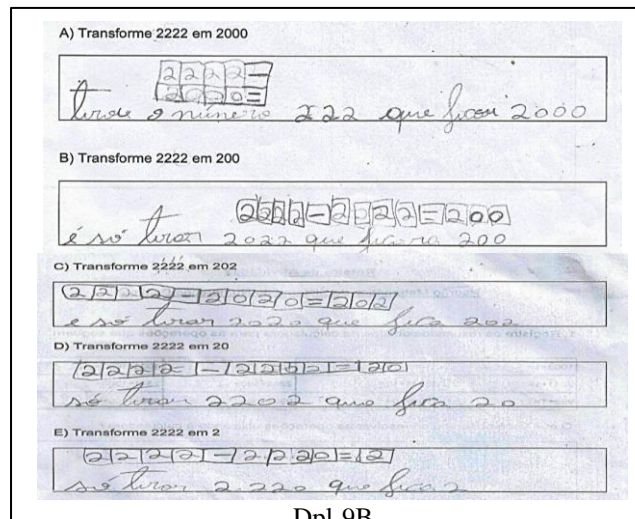 A) Transforme 2222 em 2000
2222-
2020=
tirar o número 222 que ficar 2000
B) Transforme 2222 em 200
2222-2022=200
é só tirar 2022 que ficara 200
C) Transforme 2222 em 202
2222-2020=202
e só tirar 2020 que fica 202
D) Transforme 2222 em 20
2222=1-122021=120
só tirar 2202 que fica 20
E) Transforme 2222 em 2
2222-2220=2
só tirar 2.220 que fica 2
Dpl-9B